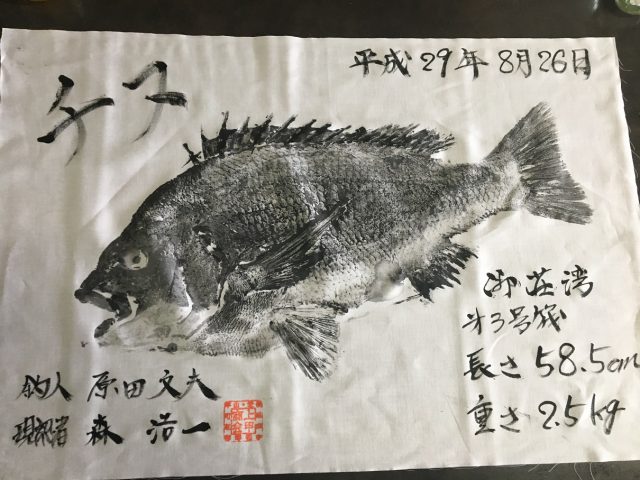 チヌ
平成29年8月26日
御荘湾
才3号筏
長さ58.5cm
重さ2.5kg
釣人 原田文夫
現認者 森 浩一